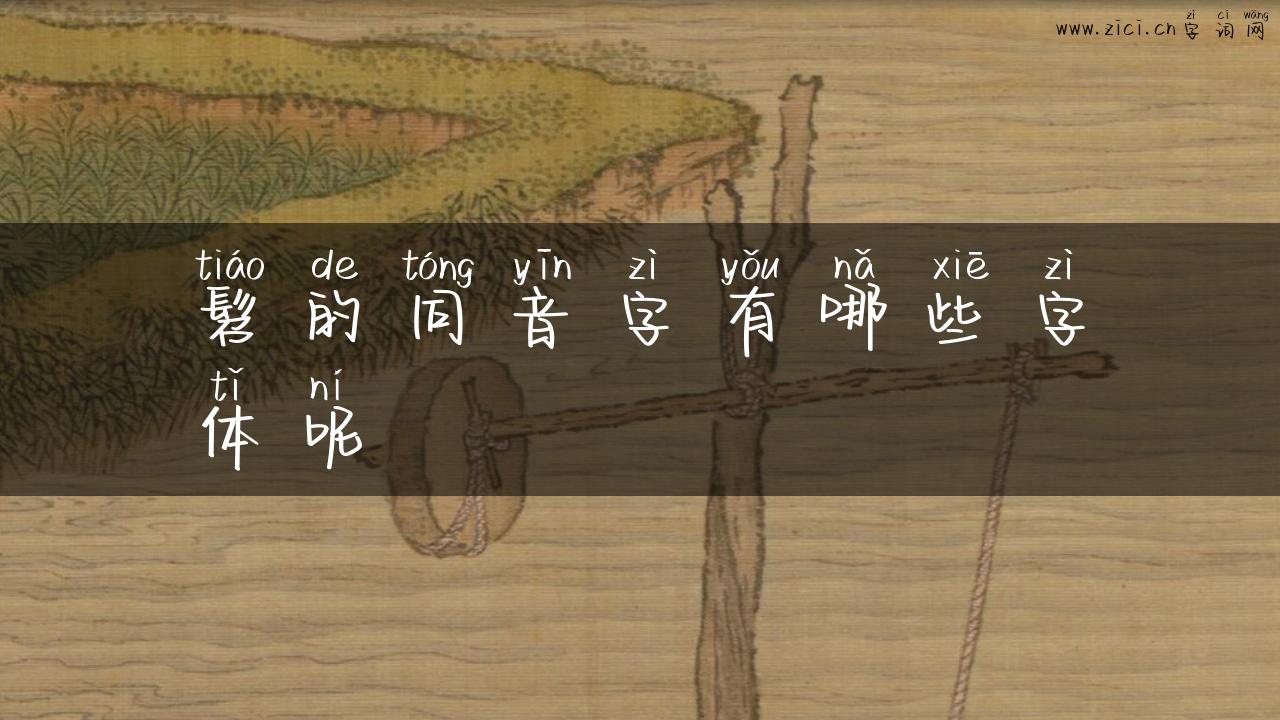 zì cí wǎng
www.zici.cn 字词网
tiáo de tóng yīn zì yǒu nǎ xiē zì
髫的同音字有哪些字
tǐ ní
体呢